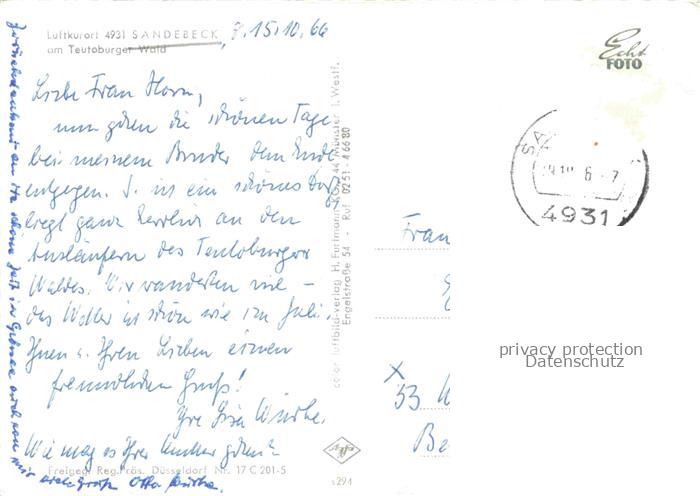 Luftkurort 4931 SANDEBECK
am Teutoburger Wald
, 15.10.66
Liebe Frau Horn,
nun gehen die schönen Tage
bei meinem Bruder dem Ende
entgegen. S. ist ein schönes Dorf,
liegt ganz herrlich an den
Ausläufern des Teutoburger
Waldes. Wir wandern viel –
das Wetter ist schön wie im Juli.
Ihnen u. Ihren Lieben einen
freundlichen Gruß!
Ihre Lisa
Wie mag es Ihrer Mutter gehen?
Freigeg. Reg. Präs. Düsseldorf Nr. 17 C 201-5
schöne Zeit in
Otto
color luftbild-verlag H. Fortmann KG, 44 Münster i. Westf.
Engelstraße 54 - Ruf 0251-46680
Echt
FOTO
4931
Frau
53
Be
Agfa
privacy protection
Datenschutz